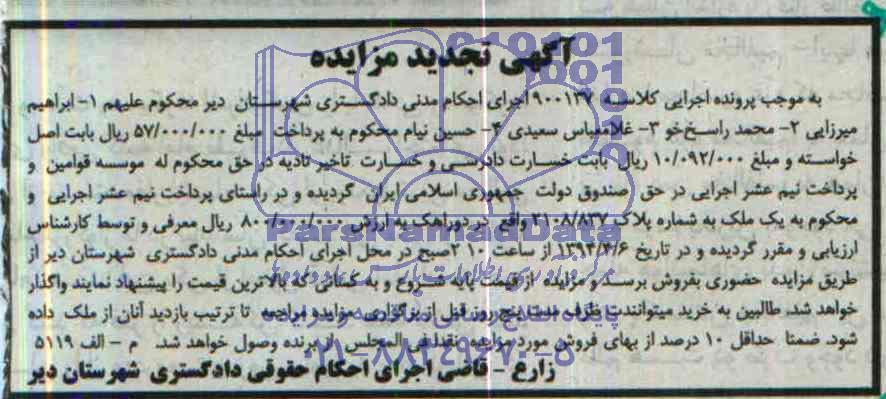 آگهی تجدید مزایده
به موجب پرونده اجرایی کلاسه ۹۰۰۱۳۷ اجرای احکام مدنی دادگستری شهرستان دیر محکوم علیهم ۱- ابراهیم
میرزایی ۲- محمد راسخ‌خو ۳- غلامعباس سعیدی ۴- حسین نیام محکوم به پرداخت مبلغ ۵۷/۰۰۰/۰۰۰ ریال بابت اصل
خواسته و مبلغ ۱۰/۰۹۲/۰۰۰ ریال بابت خسارت دادرسی و خسارت تاخیر تادیه در حق محکوم له موسسه قوامین و
پرداخت نیم عشر اجرایی در حق صندوق دولت جمهوری اسلامی ایران گردیده و در راستای پرداخت نیم عشر اجرایی و
محکوم به یک ملک به شماره پلاک ۲۱۰۸/۸۳۷ واقع در دوراهک به ارزش ۸۰۰/۰۰۰/۰۰۰ ریال معرفی و توسط کارشناس
ارزیابی و مقرر گردیده و در تاریخ ۱۳۹۴/۴/۶ از ساعت ۱۰ صبح در محل اجرای احکام مدنی دادگستری شهرستان دیر از
طریق مزایده حضوری بفروش برسد و مزایده از قیمت پایه شروع و به کسانی که بالاترین قیمت را پیشنهاد نمایند واگذار
خواهد شد. طالبین به خرید میتوانند ظرف مدت پنج روز قبل از برگزاری مزایده مراجعه تا ترتیب بازدید آنان از ملک داده
شود. ضمنا حداقل ۱۰ درصد از بهای فروش مورد مزایده نقدا فی المجلس از برنده وصول خواهد شد. م - الف ۵۱۱۹
زارع - قاضی اجرای احکام حقوقی دادگستری شهرستان دیر
ParsNamadData
۰۲۱-۸۸۳۴۹۶۷۰-۵